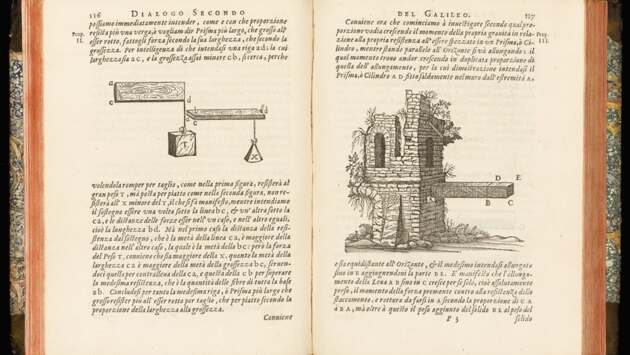 116 DIALOGO SECONDO
possiamo immediatamente intender, come e con che proporzione
Prop. II.
resista più una verga, ò vogliam dir Prisma più largo, che grosso all'
esser rotto, fattogli forza secondo la sua larghezza, che secondo la
grossezza. Per intelligenza di che intendasi una riga ad: la cui
larghezza sia ac, e la grossezza assai minore cb, si cerca, perche
a
c
T
b
X
volendola romper per taglio, come nella prima figura, resisterà al
gran peso T, ma posta per piatto come nella seconda figura, non re-
sisterà all' X minore del T, il che si fà manifesto, mentre intendiamo
il sostegno essere una volta sotto la linea bc, & un' altra sotto la
ca, e le distanze delle forze esser nell' un caso, e nell' altro eguali,
cioè la lunghezza bd. Mà nel primo caso la distanza della resi-
stenza dal sostegno, che è la metà della linea ca, è maggiore della
distanza nell' altro caso, la quale è la metà della bc: però la forza
del Peso T, conviene che sia maggiore della X, quanto la metà della
larghezza ca è maggiore della metà della grossezza bc, serven-
doci quella per contralleva della ca, e questa della cb per superare
la medesima resistenza, che è la quantità delle fibre di tutta la base
ab. Concludesi per tanto la medesima riga, è Prisma più largo che
grosso resister più all' esser rotto per taglio, che per piatto secondo la
proporzione della larghezza alla grossezza.
Conviene
DEL GALILEO. 117
Conviene ora che cominciamo à investigare secondo qual pro-
Prop. III.
porzione vadia crescendo il momento della propria gravità in re-
lazione alla propria resistenza all' essere spezzato in un Prisma, ò Ci-
lindro, mentre stando parallelo all' Orizonte si và allungando: il
qual momento trovo andar crescendo in duplicata proporzione di
quella dell' allungamento, per la cui dimostrazione intendasi il
Prisma, ò Cilindro AD fitto saldamente nel muro dall' estremità A,
D E
B C
e sia equidistante all' Orizonte, & il medesimo intendasi allungato
sino in E aggiungendovi la parte BE. E' manifesto che l'allunga-
mento della Leva AB sino in C cresce per se solo, cioè assolutamente
preso, il momento della forza premente contro alla resistenza dello
staccamento, e rottura da farsi in A secondo la proporzione di CA
à BA, ma oltre à questo il peso aggiunto del solido BE al peso del
P 3 solido